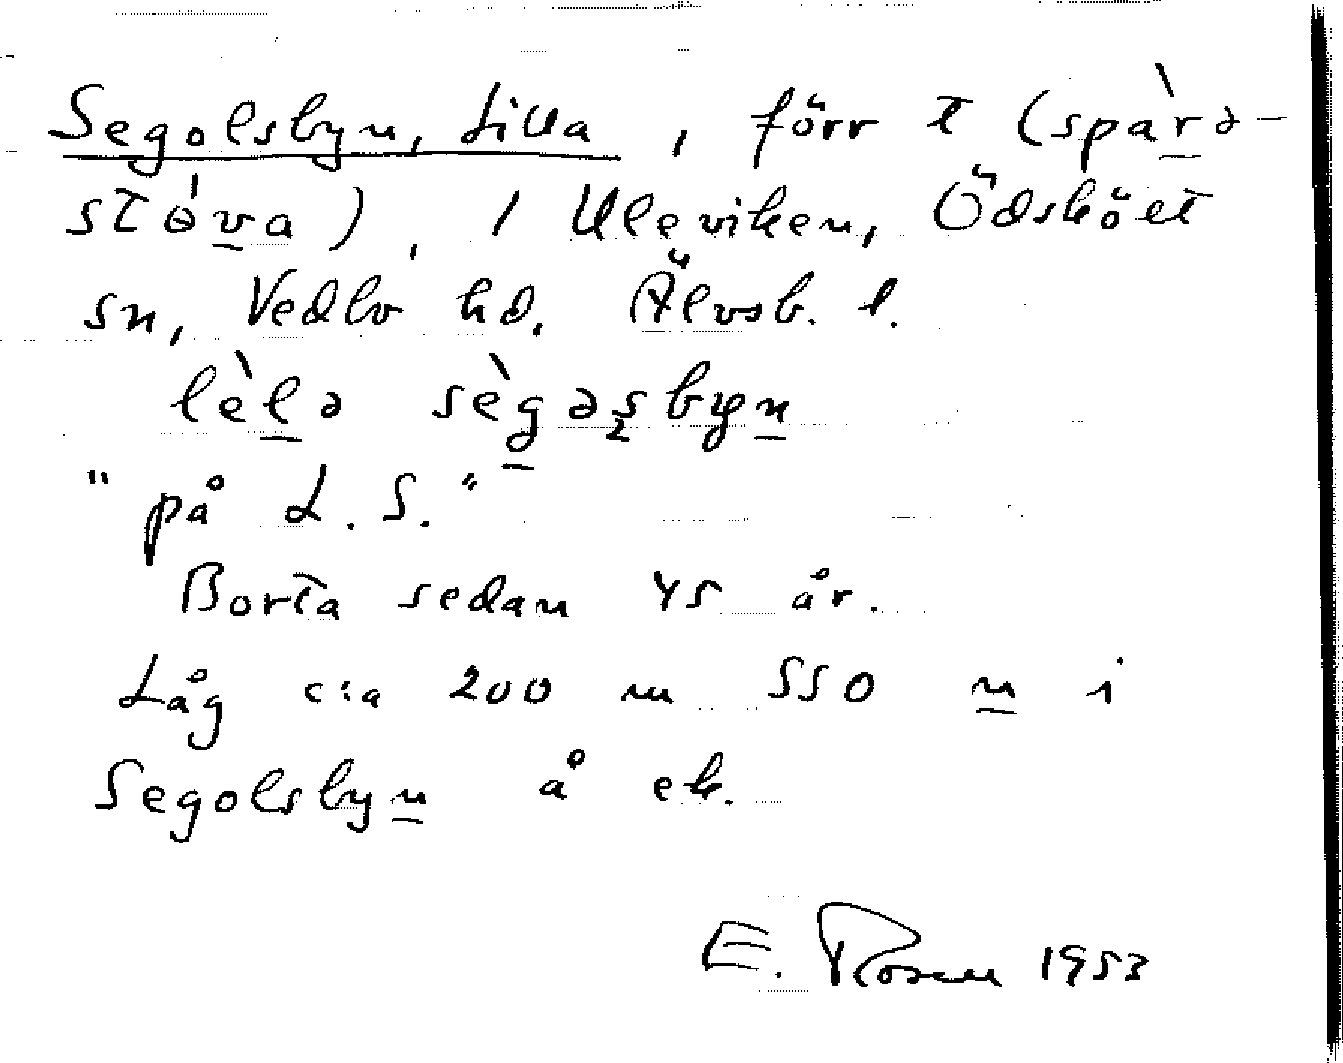 Segolsbyn, Lilla, förr t (spàrə-
stόva), 1 Uleviken, Ödskölt
sn, Vedbo hd. Älvsb. l.
lèlə sègəʂbyn
"på L. S."
Borta sedan 45 år.
Låg c:a 200 m SSO n i
Segolsbyn å ek.
E. Rosen 1953